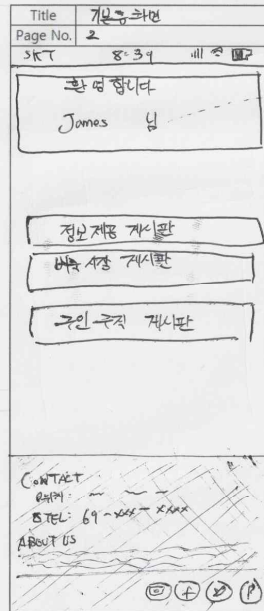 Title 기본홈화면
Page No. 2
SKT 8:39
환영합니다
James 님
정보제공 게시판
벼룩시장 게시판
구인구직 게시판
CONTACT
TEL: 69-xxx-xxxx
ABOUT US